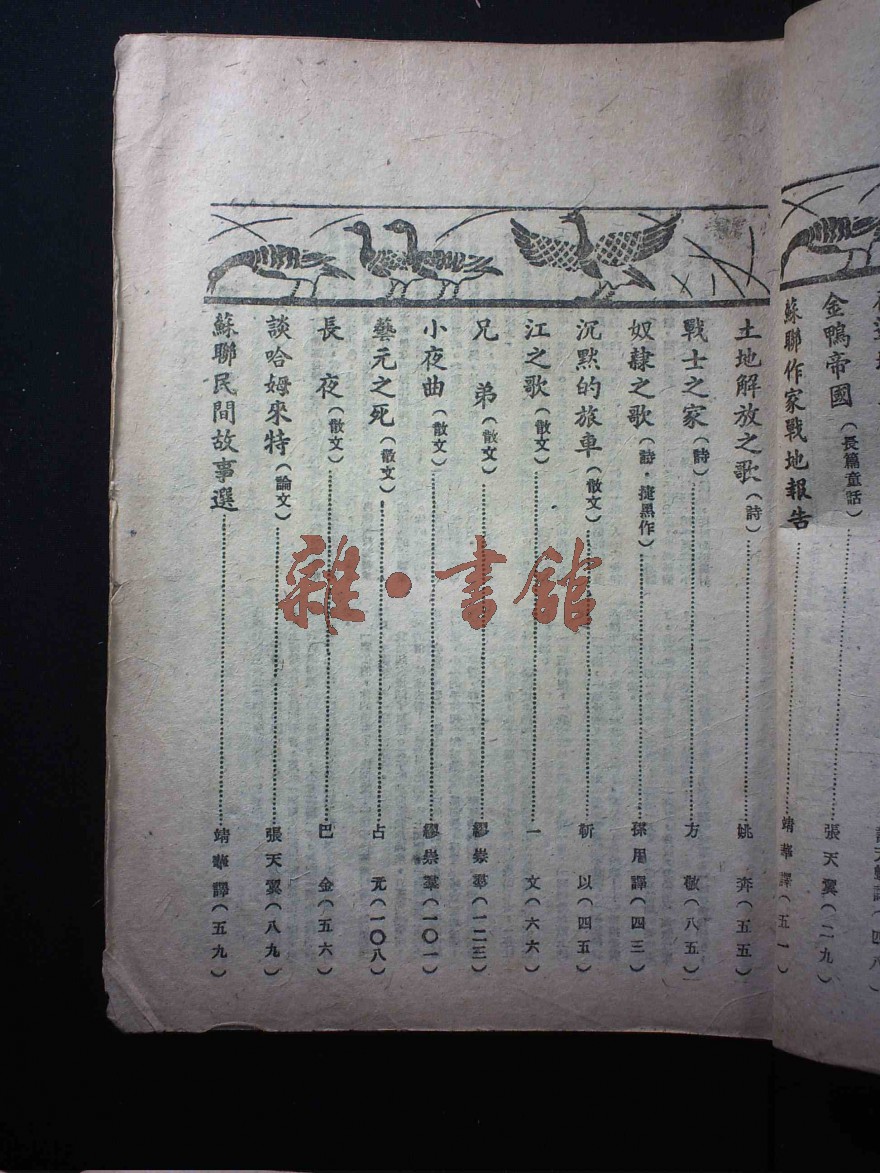 金鴨帝國(長篇童話)張天翼(二九)
蘇聯作家戰地報告靖華譯(五一)
土地解放之歌(詩)姚奔(五五)
戰士之家(詩)方敬(八五)
奴隸之歌(詩·捷黑作)孫用譯(四三)
沉默的旅車(散文)靳以(四五)
江之歌(散文)一文(六六)
兄弟(散文)繆崇羣(一二三)
小夜曲(散文)繆崇羣(一〇一)
藝元之死(散文)占元(一〇八)
長夜(散文)巴金(五六)
談哈姆來特(論文)張天翼(八九)
蘇聯民間故事選靖華譯(五九)
雜·書館